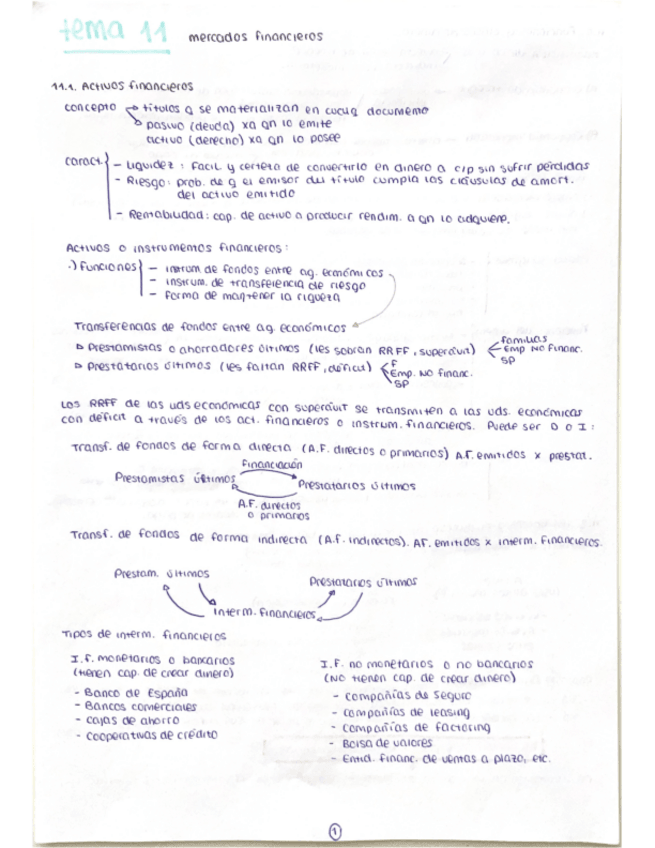 tema 11 mercados financieros
11.1. Activos financieros
concepto → títulos q se materializan en cucuq documemo
pasivo (deuda) xa qn lo emite
activo (derecho) xa qn lo posee
caract. - Liquidez : facil y certeza de convertirlo en dinero a c/p sin sufrir pérdidas
- Riesgo : prob. de q el emisor del título cumpla las cláusulas de amort.
del activo emitido
- Rentabilidad : cap. de activo a producir rendim. a qn lo adquiere.
Activos o instrumentos financieros :
·) Funciones - instrum de fondos entre ag. económicos
- instrum. de transferencia de riesgo
- forma de mantener la riqueza
Transferencias de fondos entre ag. económicos
▷ Prestamistas o ahorradores últimos (les sobran RRFF, superávit)
familias
Emp No Financ.
SP
▷ Prestatarios últimos (les faltan RRFF, déficit)
F
Emp. No financ.
SP
Los RRFF de las uds económicas con superávit se transmiten a las uds. económicas
con déficit a través de los act. financieros o instrum. financieros. Puede ser D o I :
Transf. de fondos de forma directa (A.F. directos o primarios) A.F. emitidos x prestat.
Financiación
Prestamistas últimos Prestatarios últimos
A.F. directos
o primarios
Transf. de fondos de forma indirecta (A.f. indirectos). AF. emitidos x interm. financieros.
Prestam. últimos Prestatarios últimos
Interm. financieros
Tipos de interm. financieros
I.f. monetarios o bancarios
(tienen cap. de crear dinero)
- Banco de España
- Bancos comerciales
- Cajas de ahorro
- Cooperativas de crédito
I.F. no monetarios o no bancarios
(No tienen cap. de crear dinero)
- Compañías de seguro
- Compañías de leasing
- Compañías de factoring
- Bolsa de valores
- Entid. financ. de ventas a plazo, etc.
1